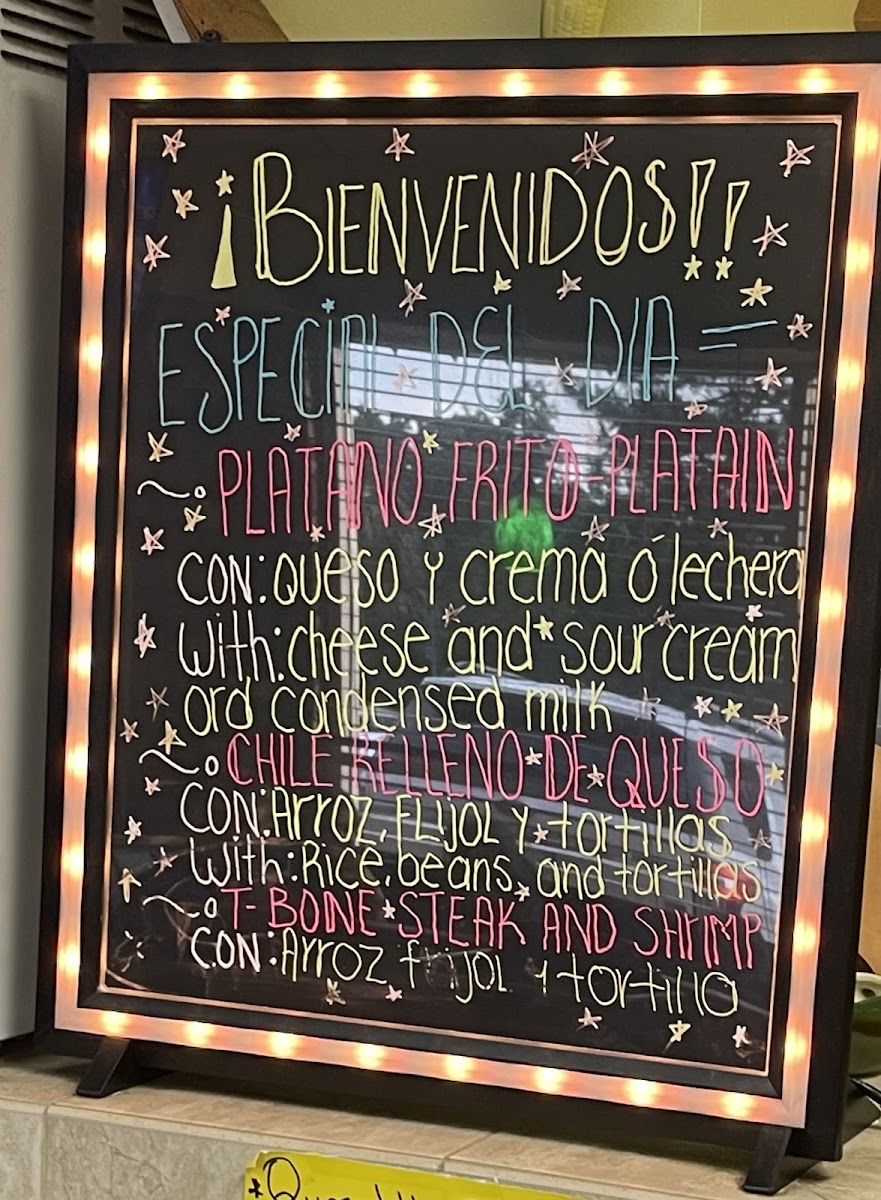 ¡BIENVENIDOS!!
ESPECIAL DEL DIA =
~o PLATANO FRITO-PLATAIN
CON: QUESO Y crema ó lechera
With: cheese and sour cream
ord condensed milk
~o CHILE RELLENO DE QUESO
CON: Arroz, FLIJOL Y tortillas
With: Rice, beans, and tortillas
~o T-BONE STEAK AND SHRIMP
CON: Arroz frijol y tortilla